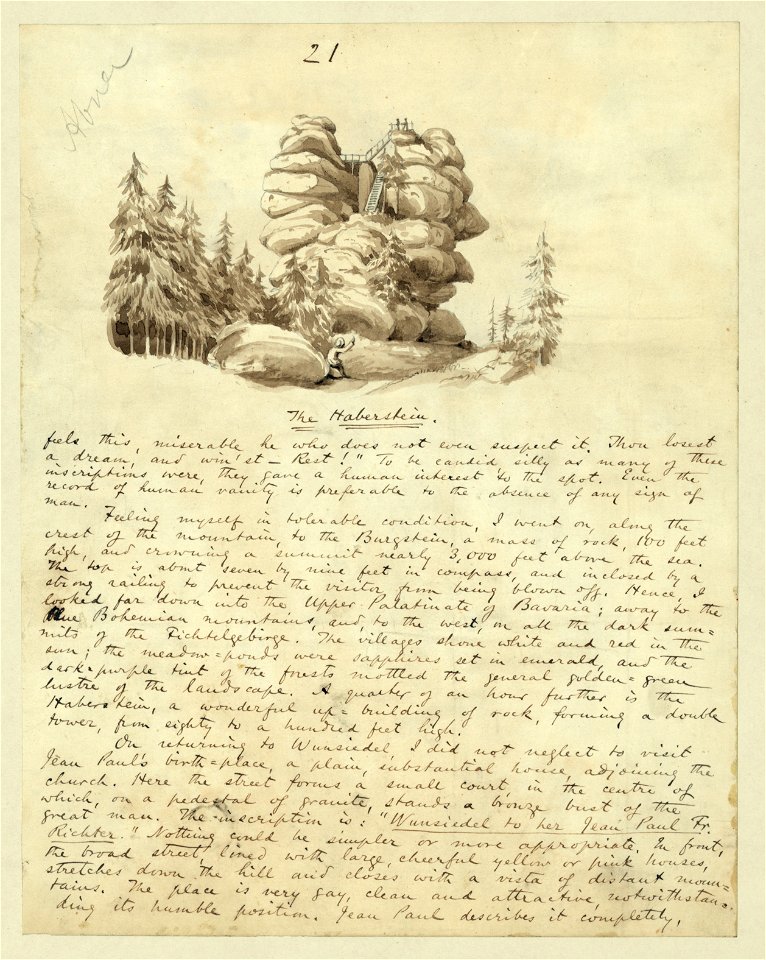 21
Abner
The Haberstein.
feels this, miserable he who does not even suspect it. Thou losest
a dream, and win'st – Rest!" To be candid silly as many of these
inscriptions were, they gave a human interest to the spot. Even the
record of human vanity is preferable to the absence of any sign of
man.
Feeling myself in tolerable condition, I went on, along the
crest of the mountain, to the Burgstein, a mass of rock, 100 feet
high, and crowning a summit nearly 3,000 feet above the sea.
The top is about seven by nine feet in compass, and inclosed by a
strong railing to prevent the visitor from being blown off. Hence, I
looked far down into the Upper Palatinate of Bavaria; away to the
blue Bohemian mountains, and, to the west, on all the dark sum=
mits of the Fichtelgebirge. The villages shone white and red in the
sun; the meadow=ponds were sapphires set in emerald, and the
dark=purple tint of the forests mottled the general golden=green
lustre of the landscape. A quarter of an hour further is the
Haberstein, a wonderful up-building of rock, forming a double
tower, from eighty to a hundred feet high.
On returning to Wunsiedel, I did not neglect to visit
Jean Paul's birth=place, a plain, substantial house, adjoining the
church. Here the street forms a small court, in the centre of
which, on a pedestal of granite, stands a bronze bust of the
great man. The inscription is: "Wunsiedel to her Jean Paul Fr.
Richter." Nothing could be simpler or more appropriate. In front,
the broad street, lined with large, cheerful yellow or pink houses,
stretches down the hill and closes with a vista of distant moun=
tains. The place is very gay, clean and attractive, notwithstan=
ding its humble position. Jean Paul describes it completely,